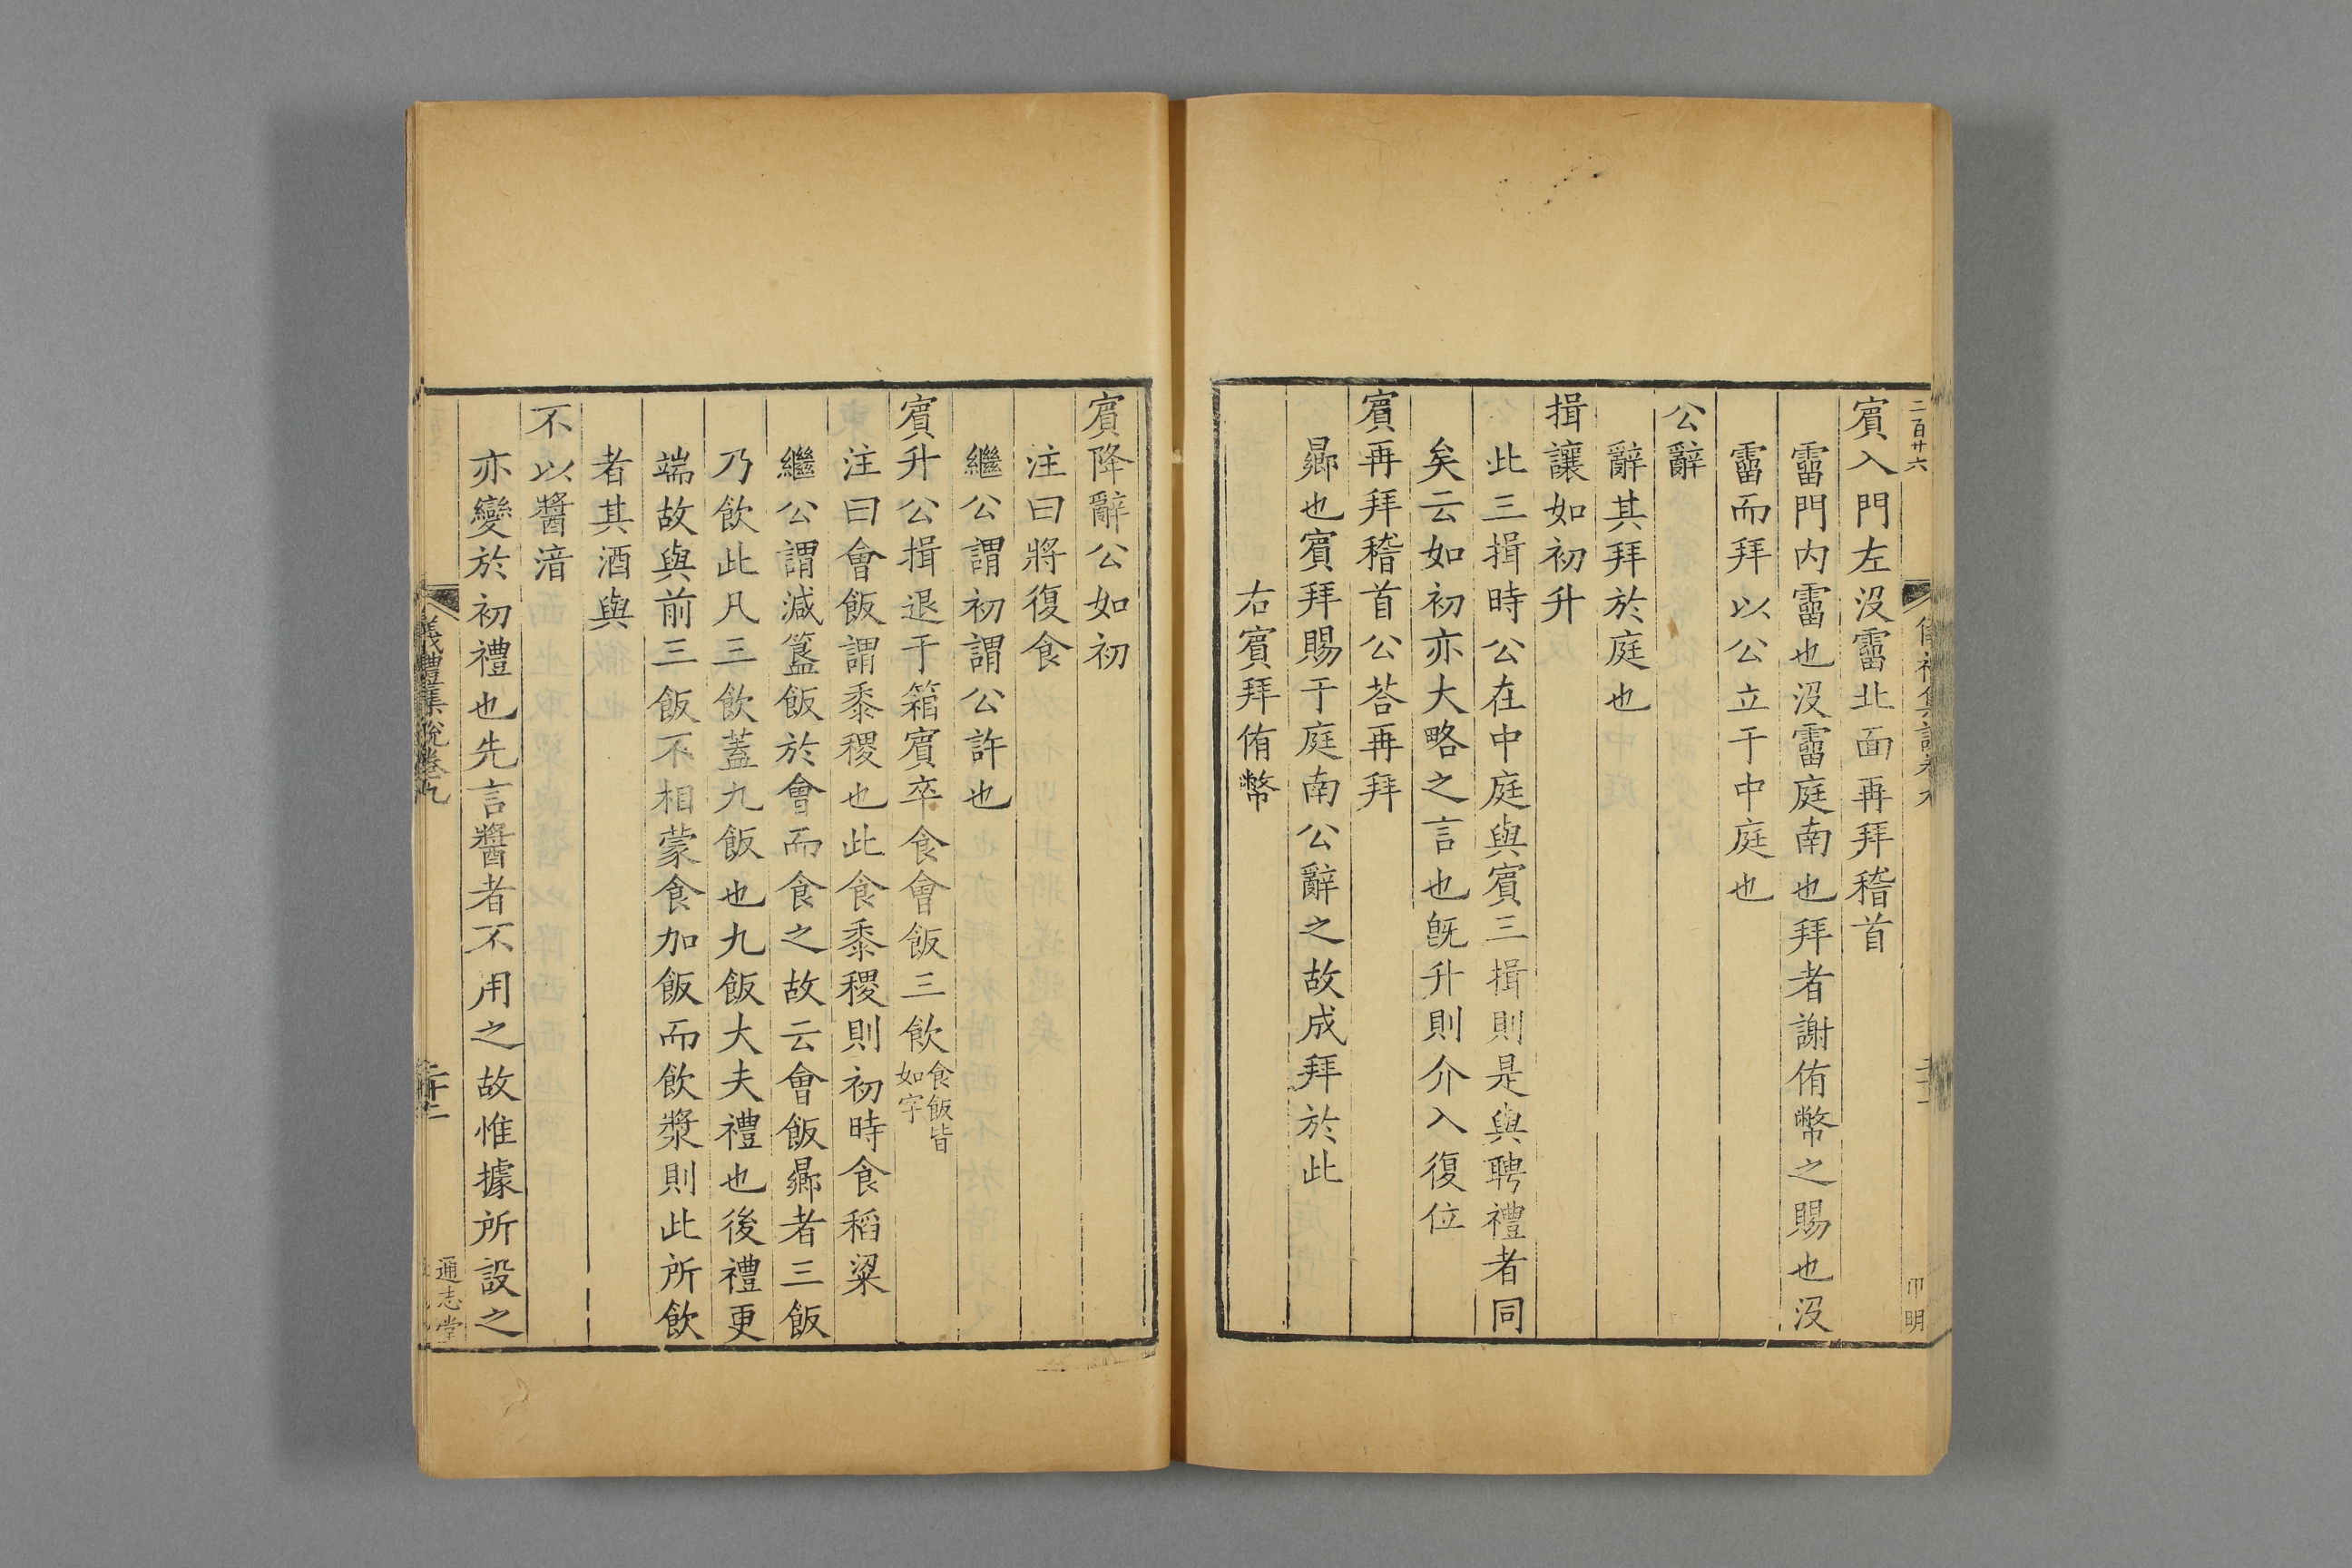 二百廿六
賔入門左沒霤北面再拜稽首
霤門内霤也沒霤庭南也拜者謝侑幣之賜也沒
霤而拜以公立于中庭也
公辭
辭其拜於庭也
揖讓如初升
此三揖時公在中庭與賔三揖則是與聘禮者同
矣云如初亦大略之言也旣升則介入復位
賔再拜稽首公荅再拜
曏也賔拜賜于庭南公辭之故成拜於此
右賔拜侑幣
賔降辭公如初
注曰將復食
繼公謂初謂公許也
賔升公揖退于箱賔卒食會飯三飲食飯皆如字
注曰會飯謂黍稷也此食黍稷則初時食稻粱
繼公謂減簋飯於會而食之故云會飯曏者三飯
乃飲此凡三飲蓋九飯也九飯大夫禮也後禮更
端故與前三飯不相蒙食加飯而飲漿則此所飲
者其酒與
不以醬湆
亦變於初禮也先言醬者不用之故惟據所設之
儀禮集說卷九
通志堂